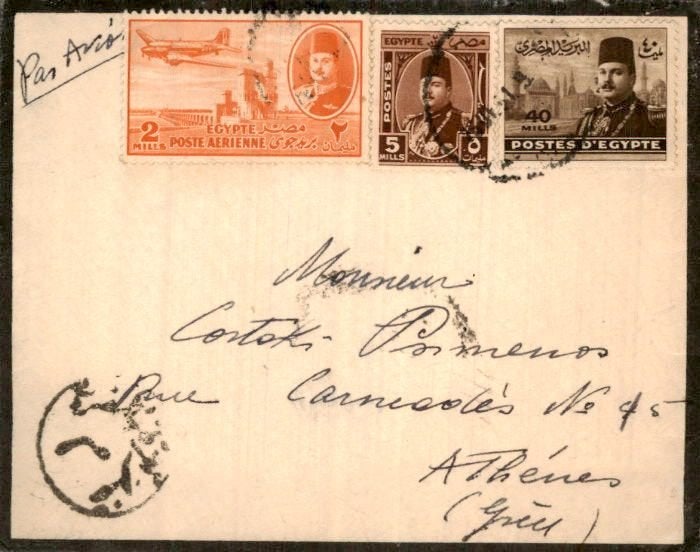 Par Avion
2
MILLS
EGYPTE مصر
POSTE AERIENNE بريد جوى
٢
مليمان
EGYPTE مصر
POSTES
5
MILLS
٥
مليمات
البريد المصرى
٤٠
مليم
40
MILLS
POSTES D'EGYPTE
Monsieur
Costaki Psimenos
Rue Carneadès No 45
Athénes
(Grèce